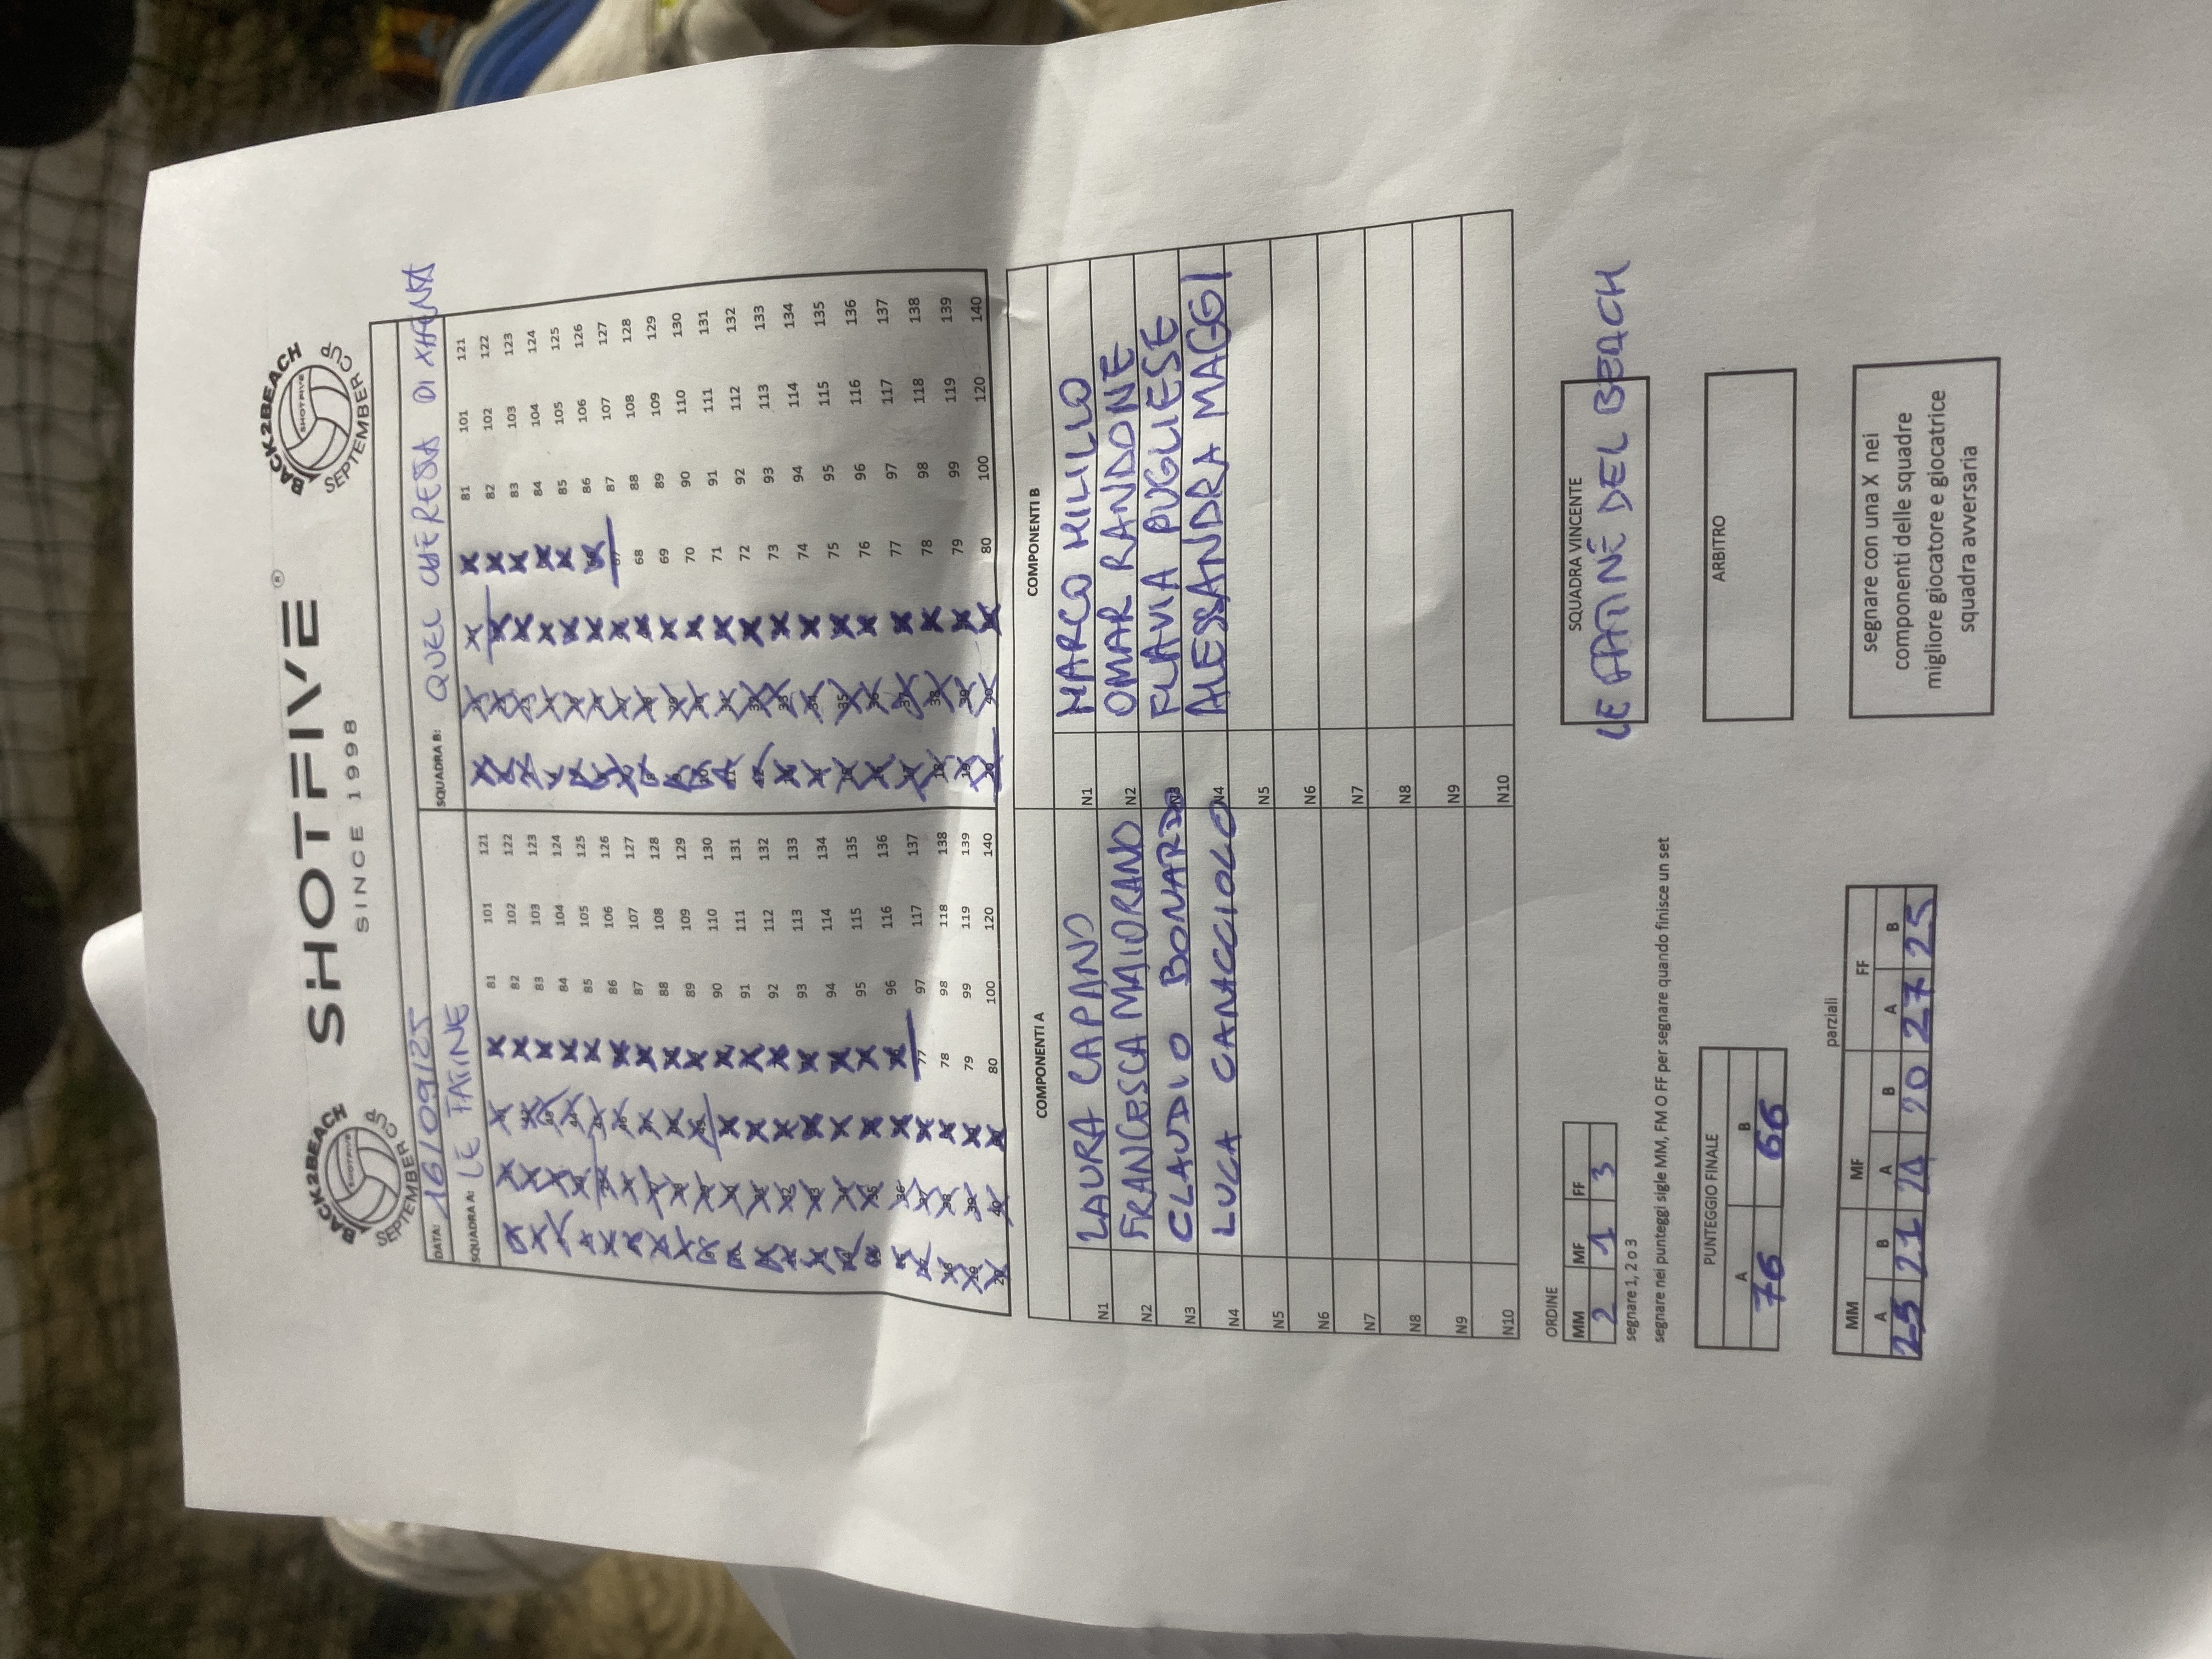 BACK2BEACH
SHOTFIVE
SEPTEMBER CUP
SHOTFIVE®
SINCE 1998
BACK2BEACH
SHOTFIVE
SEPTEMBER CUP
DATA: 16/09/25
SQUADRA A: LE FATINE
SQUADRA B: QUEL CHE RESTA DI XHENA
81 101 121
82 102 122
83 103 123
84 104 124
85 105 125
86 106 126
87 107 127
88 108 128
89 109 129
90 110 130
91 111 131
92 112 132
93 113 133
94 114 134
95 115 135
96 116 136
77 97 117 137
78 98 118 138
79 99 119 139
80 100 120 140
81 101 121
82 102 122
83 103 123
84 104 124
85 105 125
86 106 126
67 87 107 127
68 88 108 128
69 89 109 129
70 90 110 130
71 91 111 131
72 92 112 132
73 93 113 133
74 94 114 134
75 95 115 135
76 96 116 136
77 97 117 137
78 98 118 138
79 99 119 139
80 100 120 140
COMPONENTI A COMPONENTI B
N1 LAURA CAPANO N1 MARCO MILILLO
N2 FRANCESCA MAIORANO N2 OMAR RANDONE
N3 CLAUDIO BONARDO N3 FLAVIA PUGLIESE
N4 LUCA CANACCIOLO N4 ALESSANDRA MAGGI
N5 N5
N6 N6
N7 N7
N8 N8
N9 N9
N10 N10
ORDINE
MM MF FF
2 1 3
segnare 1, 2 o 3
segnare nei punteggi sigle MM, FM O FF per segnare quando finisce un set
SQUADRA VINCENTE
LE FATINE DEL BEACH
PUNTEGGIO FINALE
A B
76 66
ARBITRO
parziali
MM MF FF
A B A B A B
25 21 24 20 27 25
segnare con una X nei
componenti delle squadre
migliore giocatore e giocatrice
squadra avversaria